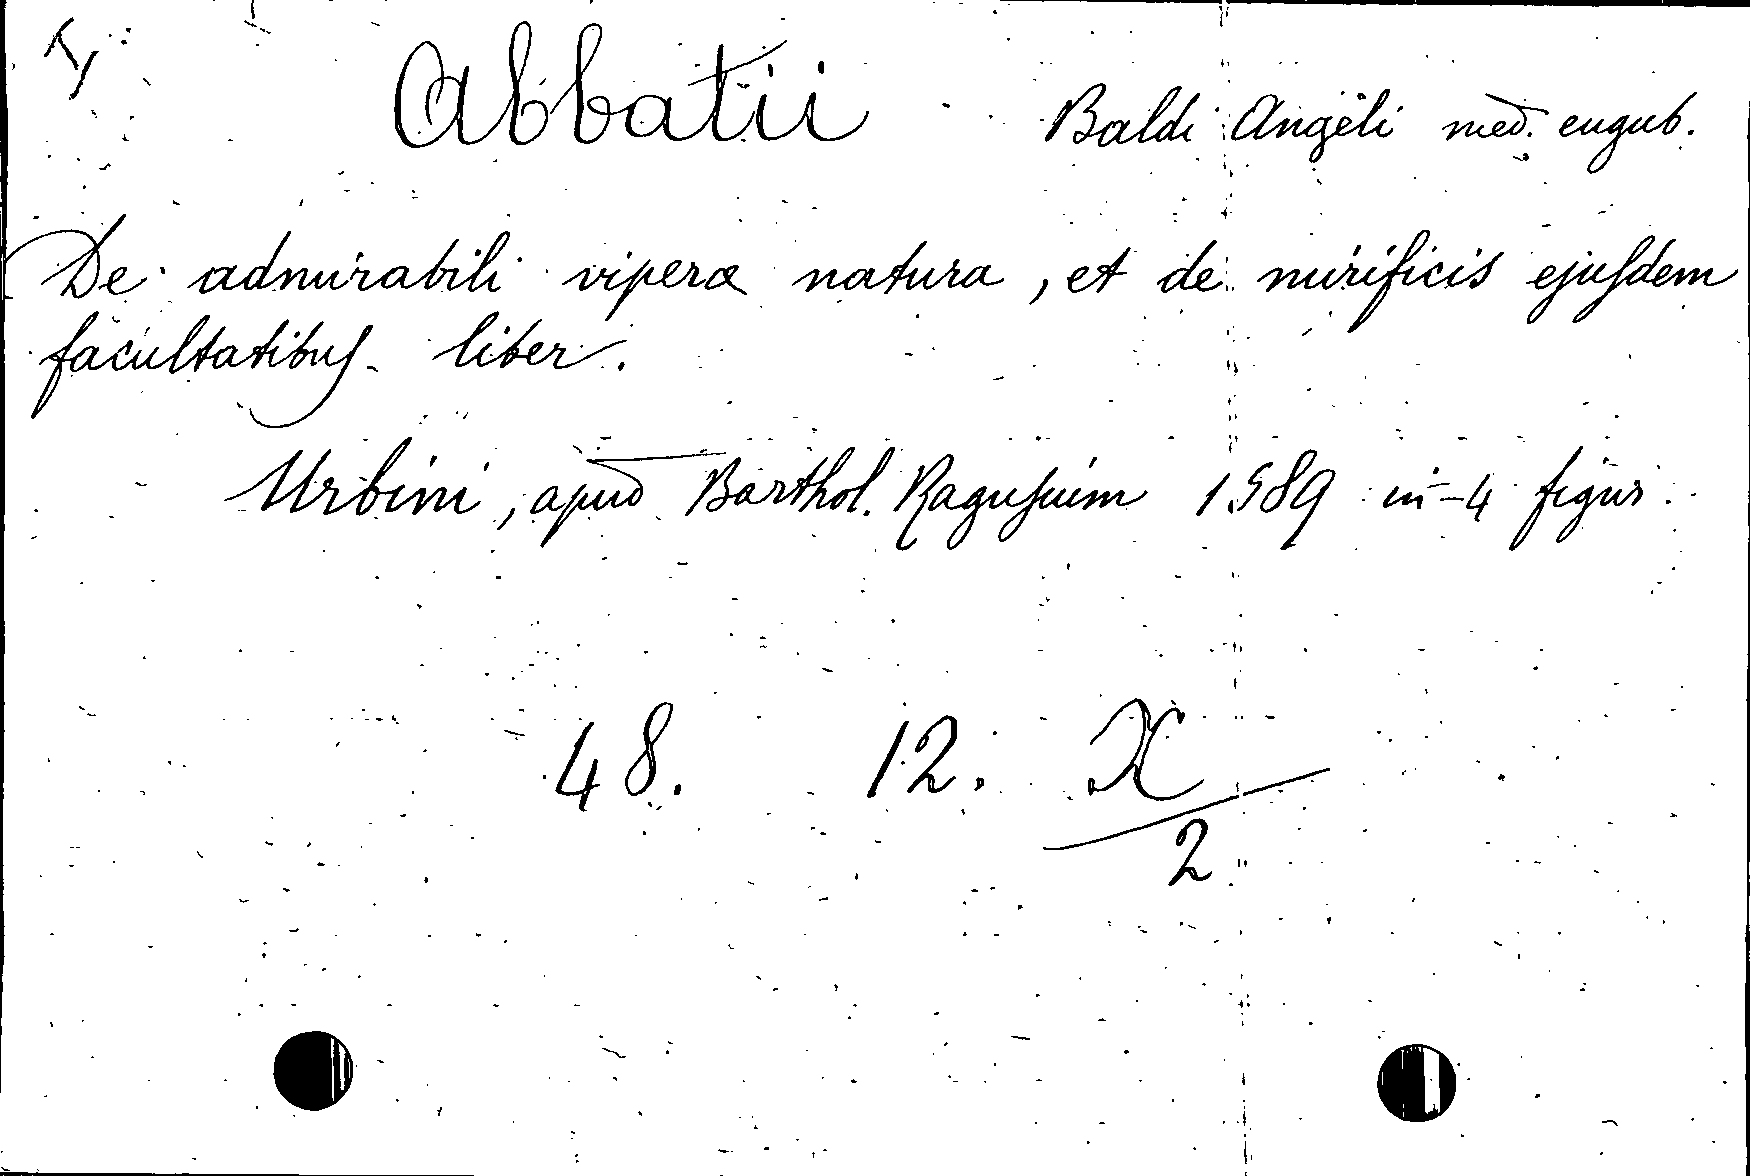 Abbatii Baldi Angeli med. eugub.
De admirabili viperæ natura, et de mirificis ejuſdem
facultatibuſ liber.
Urbini, apud Barthol. Raguſium 1589 in-4 figur.
48. 12. X
2